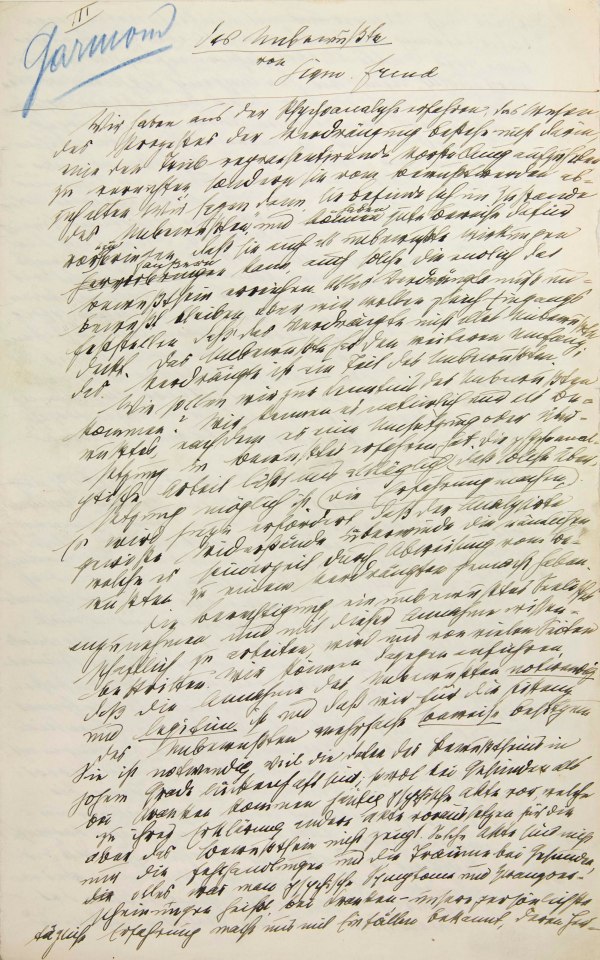 III
Garmond
Das Unbewußte
von
Sigm. Freud
Wir haben aus der Psychoanalyse erfahren, das Wesen
des Prozesses der Verdrängung bestehe nicht darin,
eine den Trieb repraesentirende Vorstellung aufzuheben
zu vernichten, sondern sie vom Bewußtwerden ab-
zuhalten. Wir sagen dann, sie befinde sich im Zustande
des „Unbewußten“, und haben gute Beweise dafür
vorzubringen, daß sie auch unbewußte Wirkungen
äußern
hervorbringen kann, auch solche, die endlich das
Bewußtsein erreichen. Alles Verdrängte muß un-
bewußt bleiben, aber wir wollen gleich Eingangs
feststellen, daß das Verdrängte nicht alles Unbewußte
deckt. Das Unbewußte hat den weiteren Umfang;
das Verdrängte ist ein Teil des Unbewußten.
Wie sollen wir zur Kenntnis des Unbewußten
kommen? Wir kennen es natürlich nur als Be-
wußtes, nachdem es eine Umsetzung oder Über-
setzung in Bewußtes erfahren hat. Die psychoanaly-
tische Arbeit läßt uns alltäglich die Erfahrung machen, daß solche Über-
setzung möglich ist.
Es wird hiezu erfordert, daß der Analysirte
gewisse Widerstände überwinde, die nämlichen,
welche es seinerzeit durch Abweisung vom Be-
wußten zu einem Verdrängten gemacht haben.
Die Berechtigung, ein unbewußtes Seelisches
anzunehmen und mit dieser Annahme wissen-
schaftlich zu arbeiten, wird uns von vielen Seiten
bestritten. Wir können dagegen anführen,
daß die Annahme des Unbewußten notwendig
und legitim ist und daß wir für die Existenz
des Unbewußten mehrfache Beweise besitzen.
Sie ist notwendig, weil die Daten des Bewußtseins in
hohem Grade lückenhaft sind; sowol bei Gesunden als
bei Kranken kommen häufig psychische Akte vor, welche
zu ihrer Erklärung andere Akte voraussetzen, für die
aber das Bewußtsein nicht zeugt. Solche Akte sind nicht
nur die Fehlhandlungen und die Träume bei Gesunden,
die alles, was man psychische Symptome und Zwangser-
scheinungen heißt, bei Kranken – unsere persönlichste
tägliche Erfahrung macht uns mit Einfällen bekannt, deren Her-